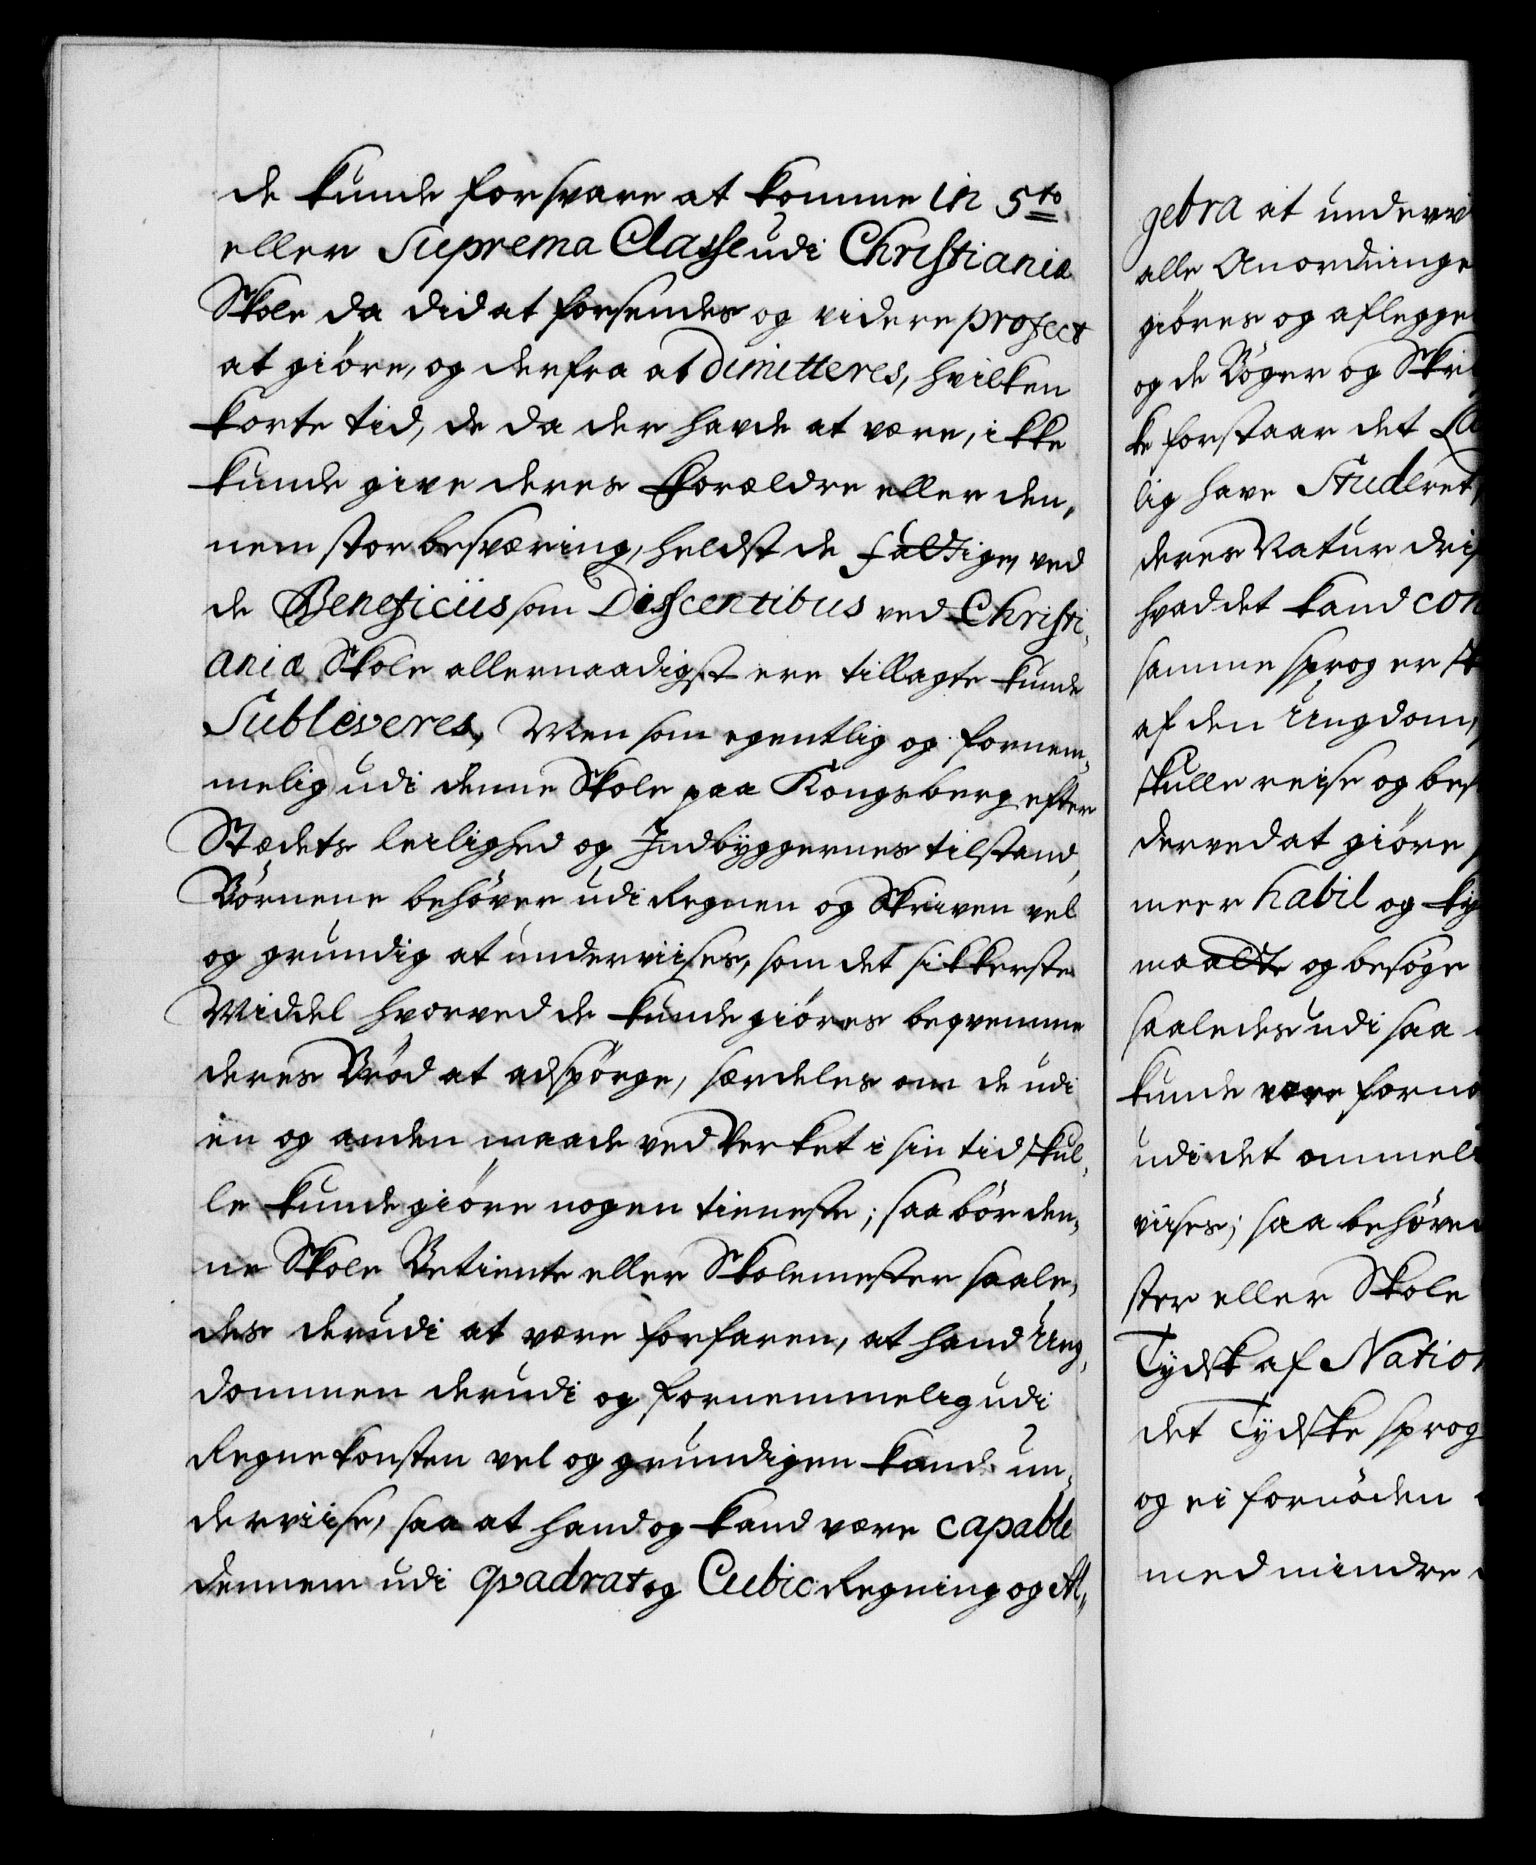 de kunde forsvare at komme in 5to
eller Suprema Classe udi Christianiæ
Skole da did at forsendes og videre profect
at giöre, og derfra at Dimitteres, hvilken
korte tid, de da der havde at være, ikke
kunde give deres Forældre eller den,
nem stor besværing, heldst de fattige, ved
de Beneficiis som Discentibus ved Christi,
aniæ Skole allernaadigst ere tillagte kunde
Subleveres, Men som egentlig og fornem,
melig udi denne Skole paa Kongsberg efter
Stædets leilighed og Indbyggernes tilstand,
Börnene behöver udi Regnen og Skriven vel
og grundig at underviises, som det sikkerste
Middel hvorved de kunde giöres beqvemme
deres Bröd at adspörge, særdeles om de udi
en og anden maade ved Verket i sin tid skul,
le kunde giöre nogen tieneste; saa bör den,
ne Skole Betiente eller Skolemester saale,
des derudi at være forfaren, at hand Ung,
dommen derudi og fornemmelig udi
Regnekonsten vel og grundigen kand un,
derviise, saa at hand og kand være capable
dennem udi qvadrat og Cubic Regning og Al,
gebra at underv
alle Anordninge
giöres og aflegge
og de Böger og Skri
ke forstaar det La
lig have Studeret,
deres Natur dri
hvad det kand con
samme sprog er st
af den Ungdom,
skulle reise og bes
derved at giöre
meer habil og
og besöge
saaledes udi saa
kunde være fornö
udi det ommel
viises; saa behöved
ster eller Skole
Tydsk af Nation
det Tydske sprog
og ei fornöden
med mindre